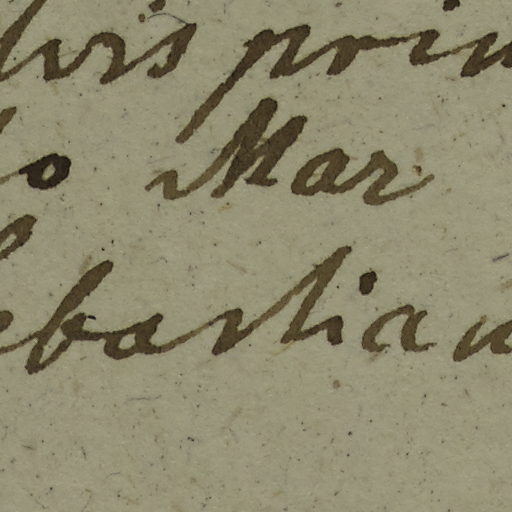 vis prin
lo Mar
ebastian